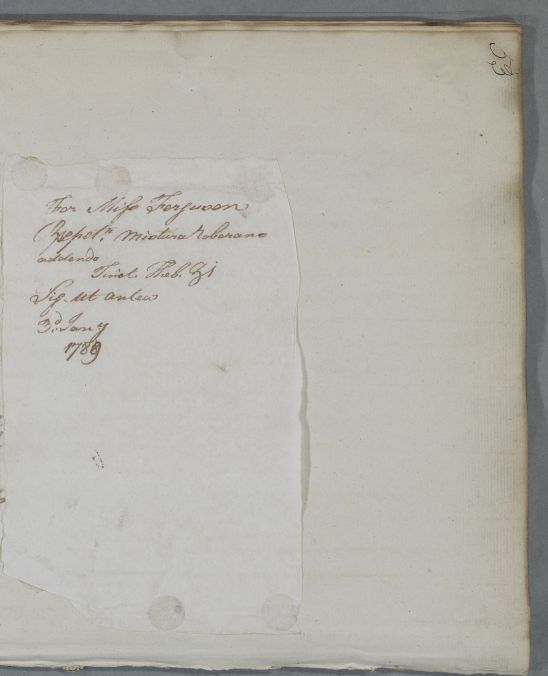 33
For Miss Ferguson
Repet.r Mixtura Roborans
addendo
Tinct. Theb. ʒi
Sig. ut antea
3.d Jany
1789